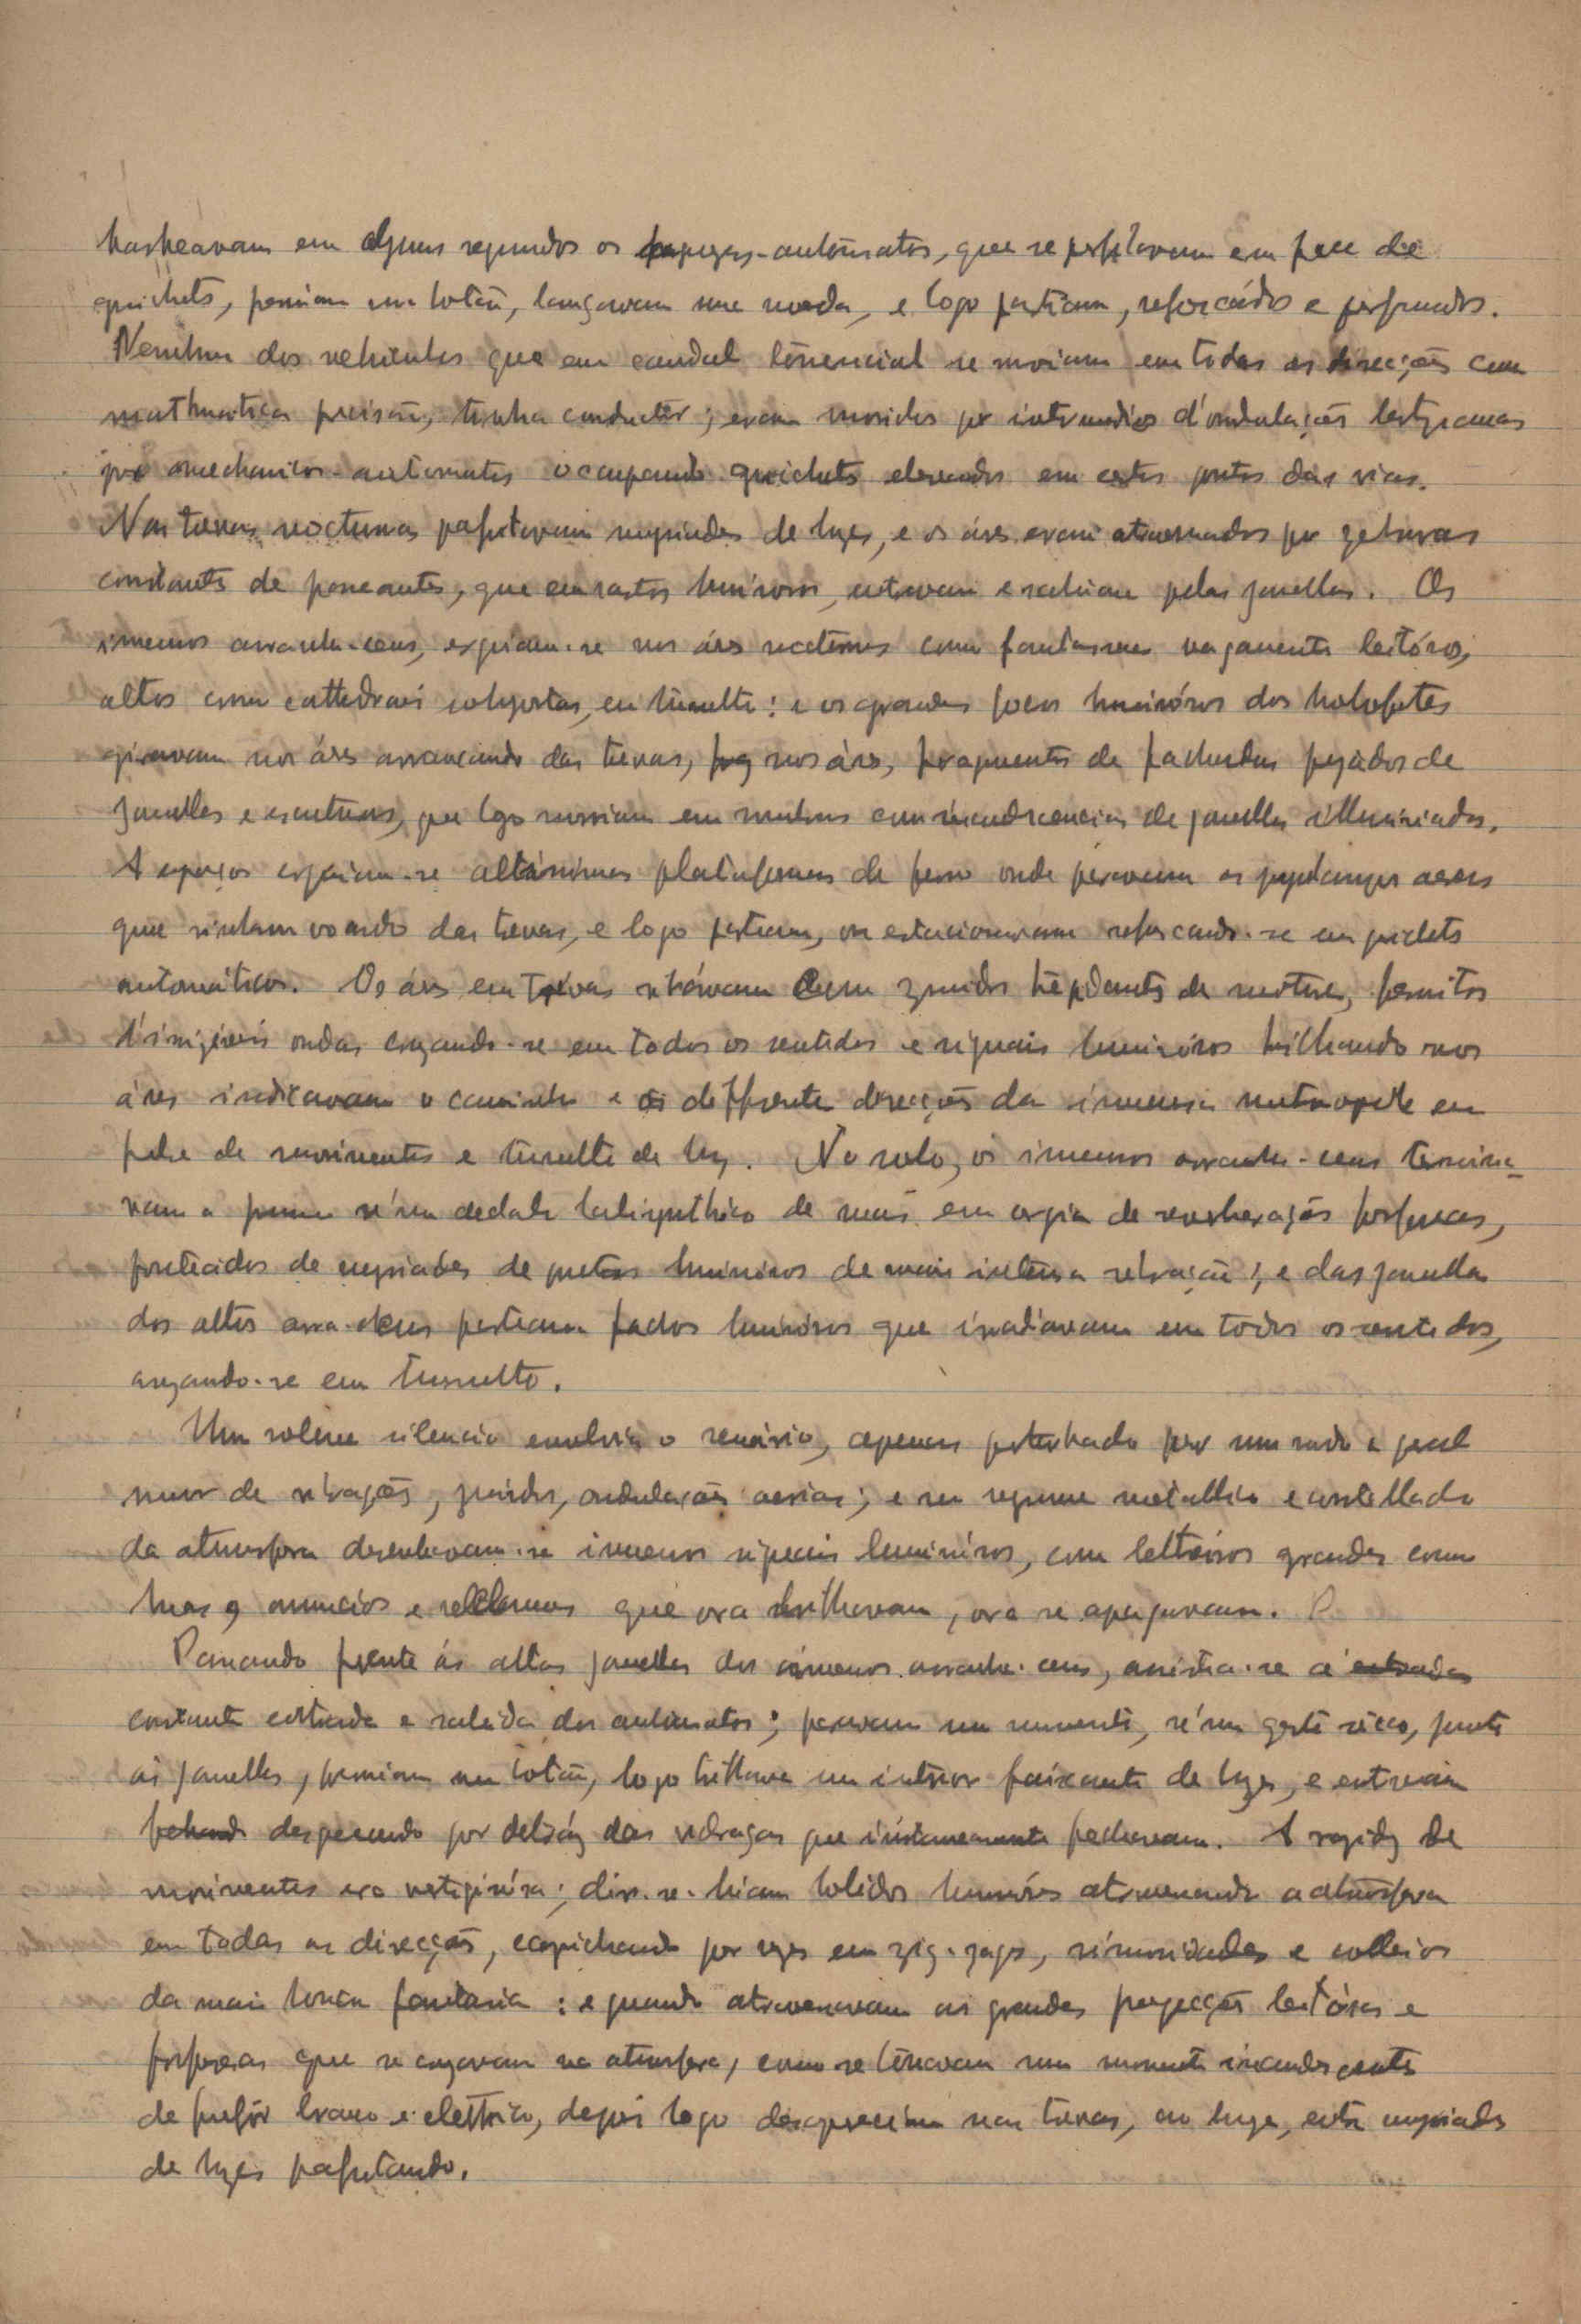 em alguns segundos os -automatos, que se em face de
guichets, premiam um botão, lançavam uma moeda, e logo partiam, refrescádos e perfumados.
Nenhum dos vehiculos que em caudal torrencial se moviam em todas as direcções com
mathematica precisão, tinha conductôr; eram movidos por intermedio d'ondulações
por mechanicos-automatos occupando guichets elevados em certos pontos das vias.
Nas trevas nocturnas palpitavam myriades de luzes, e os áres eram atravessados por
constantes de passeantes, que em rastos luminosos, entravam e sahiam pelas janellas. Os
imensos arranha-ceus, erguiam-se nos áres nocturnos como fantasmas vagamente leitósos,
altos como cathedraes sobrepostas, em tumulto: e os grandes focos luminósos dos holofotes
giravam nos áres arrancando das trevas, nos áres, fragmentos de fachadas pejados de
janellas e esculturas, que logo sumiam em sombras com incandescencias de janellas illuminadas.
A espaços erguiam-se altissimas plataformas de ferro onde paravam os aereos
que vinham voando das trevas, e logo partiam, ou estacionavam refrescando-se em guichets
automáticos. Os áres em trévas vibávam com zumidos trepidantes de motores, fremitos
d'invisiveis ondas cruzando-se em todos os sentidos e signaes luminósos brilhando nos
áres indicavam o caminho e as differentes direcções da imensa metropole em
febre de movimentos e tumulto de luz. No solo, os imensos arranha-ceus termina-
vam a prumo n'um dedalo labirynthico de ruas em orgia de reverberações fosforeas,
ponteádos de myriades de pontos luminosos de mais intensa vibração; e das janellas
dos altos arra-deus partiam fachos luminósos que irradiavam em todos os sentidos,
cruzando-se em tumulto.
Um solene silencio envolvia o scenário, apenas perturbado por um surdo e geral
rumor de vibrações, zunidos, ondulações aerias; e no negrume metallico e constellado
da atmosfera desenhavam-se imensos signaes luminósos, com lettreiros grandes como
luas, annuncios e reclamos que ora brilhavam, ora se apagavam.
Passando frente ás altas janellas dos imensos arranha-ceus, assistia-se á entrada
constante entrada e sahida dos automatos; paravam um momento, n'um gesto sêcco, junto
ás janellas, premiam um botão, logo brilhava um interior faiscante de luzes, e entravam
fechando desparecendo por detráz das vidraças que instantaneamente fechavam. A rapidez de
movimentos era vertiginósa; dir-se-hiam bolidos luminósos atravessando a atmosfera
em todas as direcções, por vezes em zig-zags, sinuosidades e colleios
da mais louca fantasia: e quando atravessavam as grandes projecções leitósas e
fosforeas que se cruzavam na atmosfera, como se tornavam um momento incandescentes
de fulgôr branco e elettrico, depois logo desapareciam nas trevas, ao longe, entre myriades
de luzes palpitando.